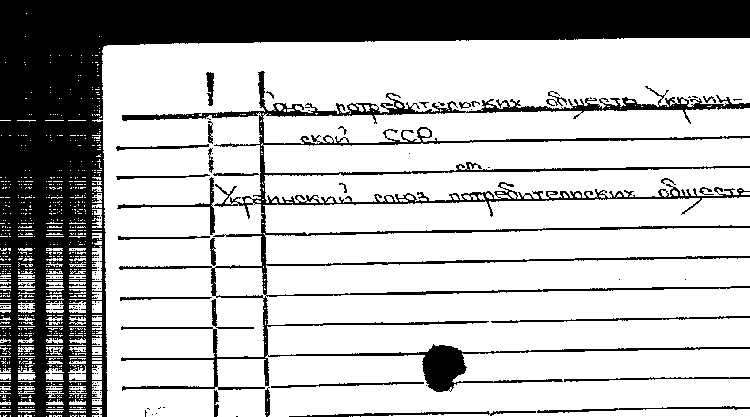 Союз потребительских обществ Украин-
ской ССР.
см.
Украинский союз потребительских обществ